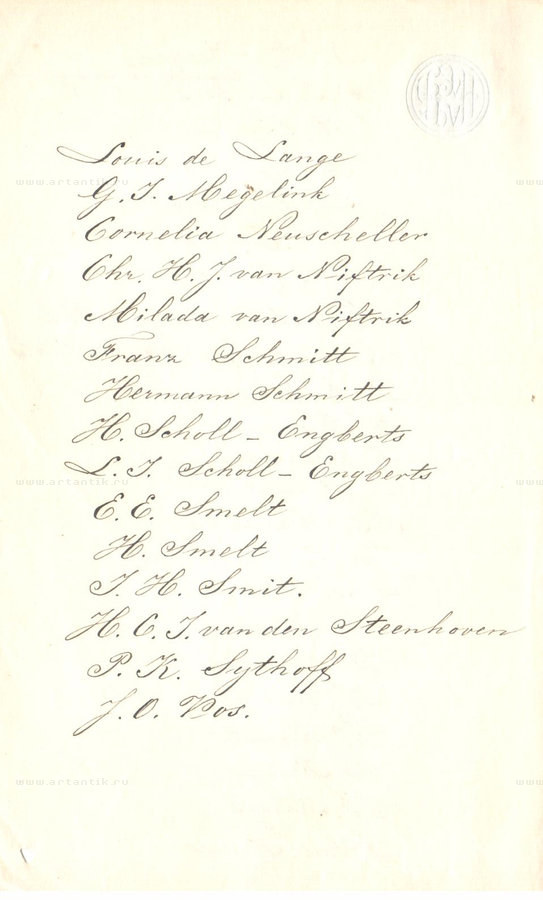 Louis de Lange
G. J. Megelink
Cornelia Neuscheller
Chr. H. J. van Niftrik
Milada van Niftrik
Franz Schmitt
Hermann Schmitt
H. Scholl - Engberts
L. J. Scholl - Engberts
E. E. Smelt
H. Smelt
J. H. Smit.
H. C. J. van den Steenhoven
P. K. Sythoff
J. O. Vos.
www.artantik.ru